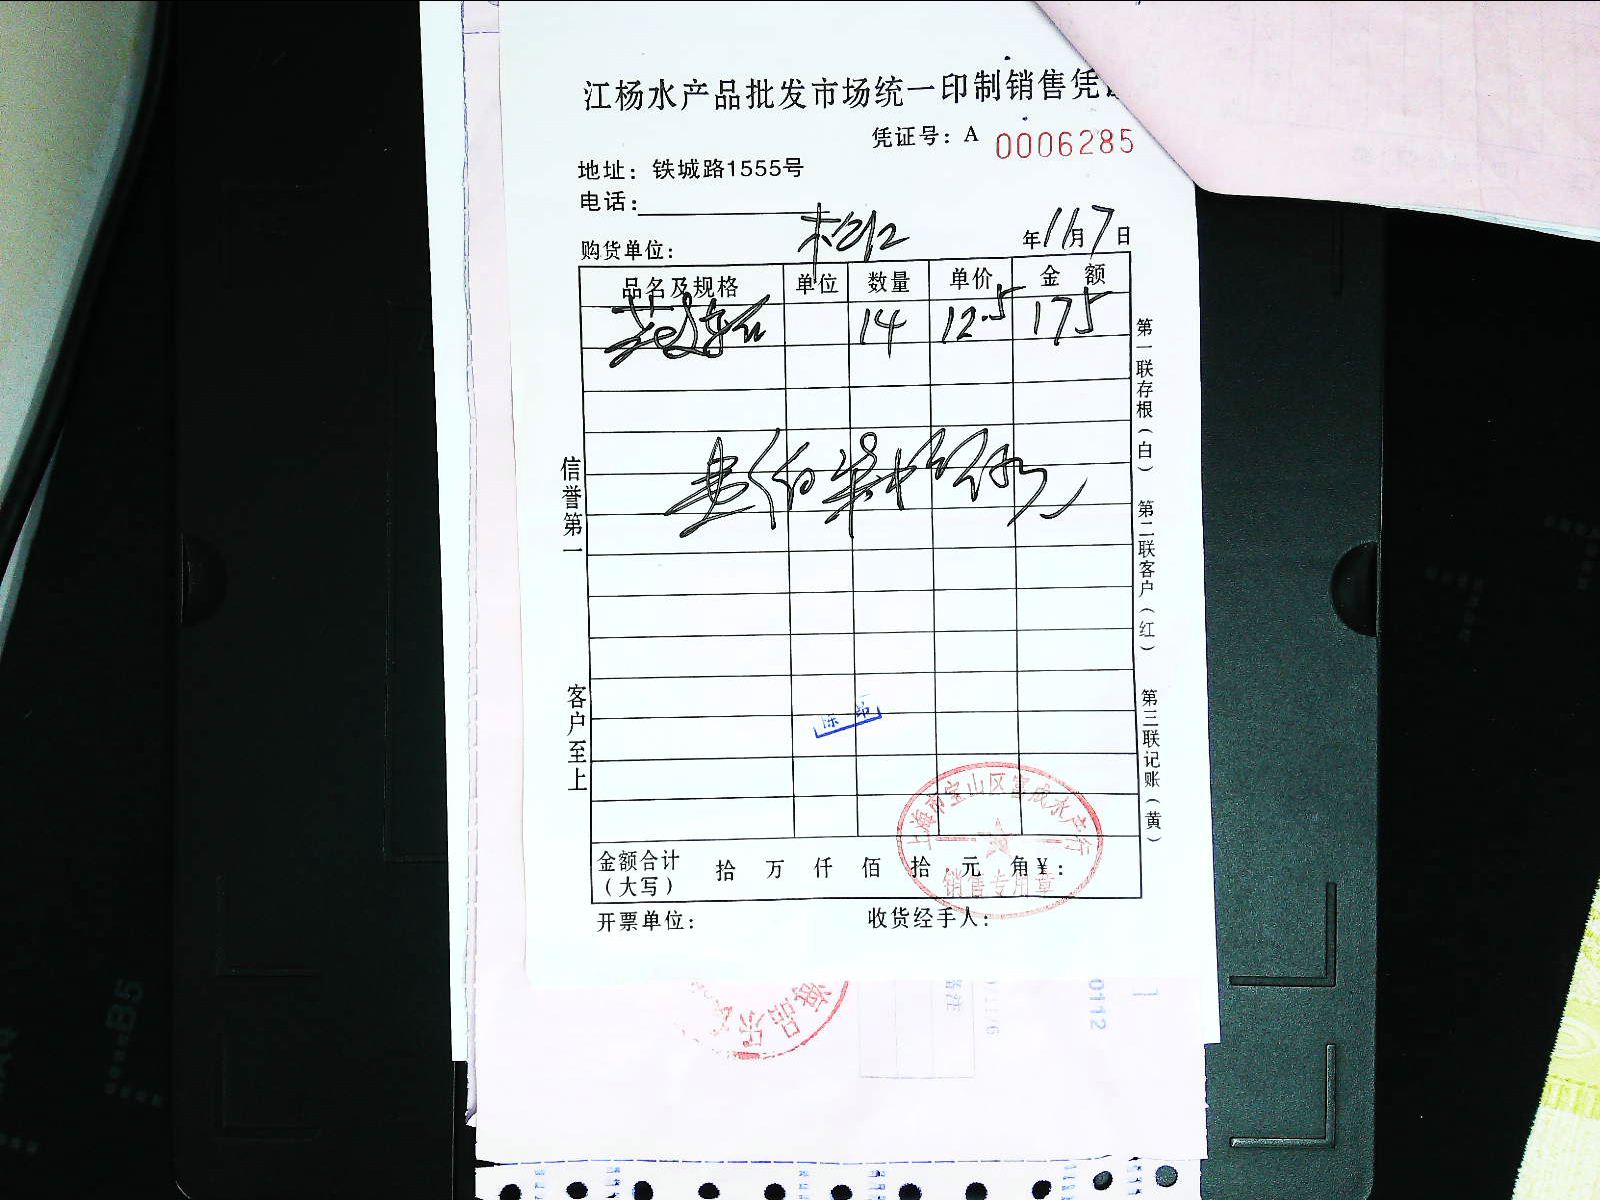 江杨水产品批发市场统一印制销售凭
凭证号：A 0006285
地址：铁城路1555号
电话：
购货单位： 松江 年11月7日
品名及规格 单位 数量 单价 金额
14 12.5 175
信誉第一
客户至上
第一联存根（白）
第二联客户（红）
第三联记账（黄）
上海市宝山区富成水产行
销售专用章
金额合计（大写） 拾 万 仟 佰 拾 元 角 ￥：
开票单位： 收货经手人：
备注
0112
B5